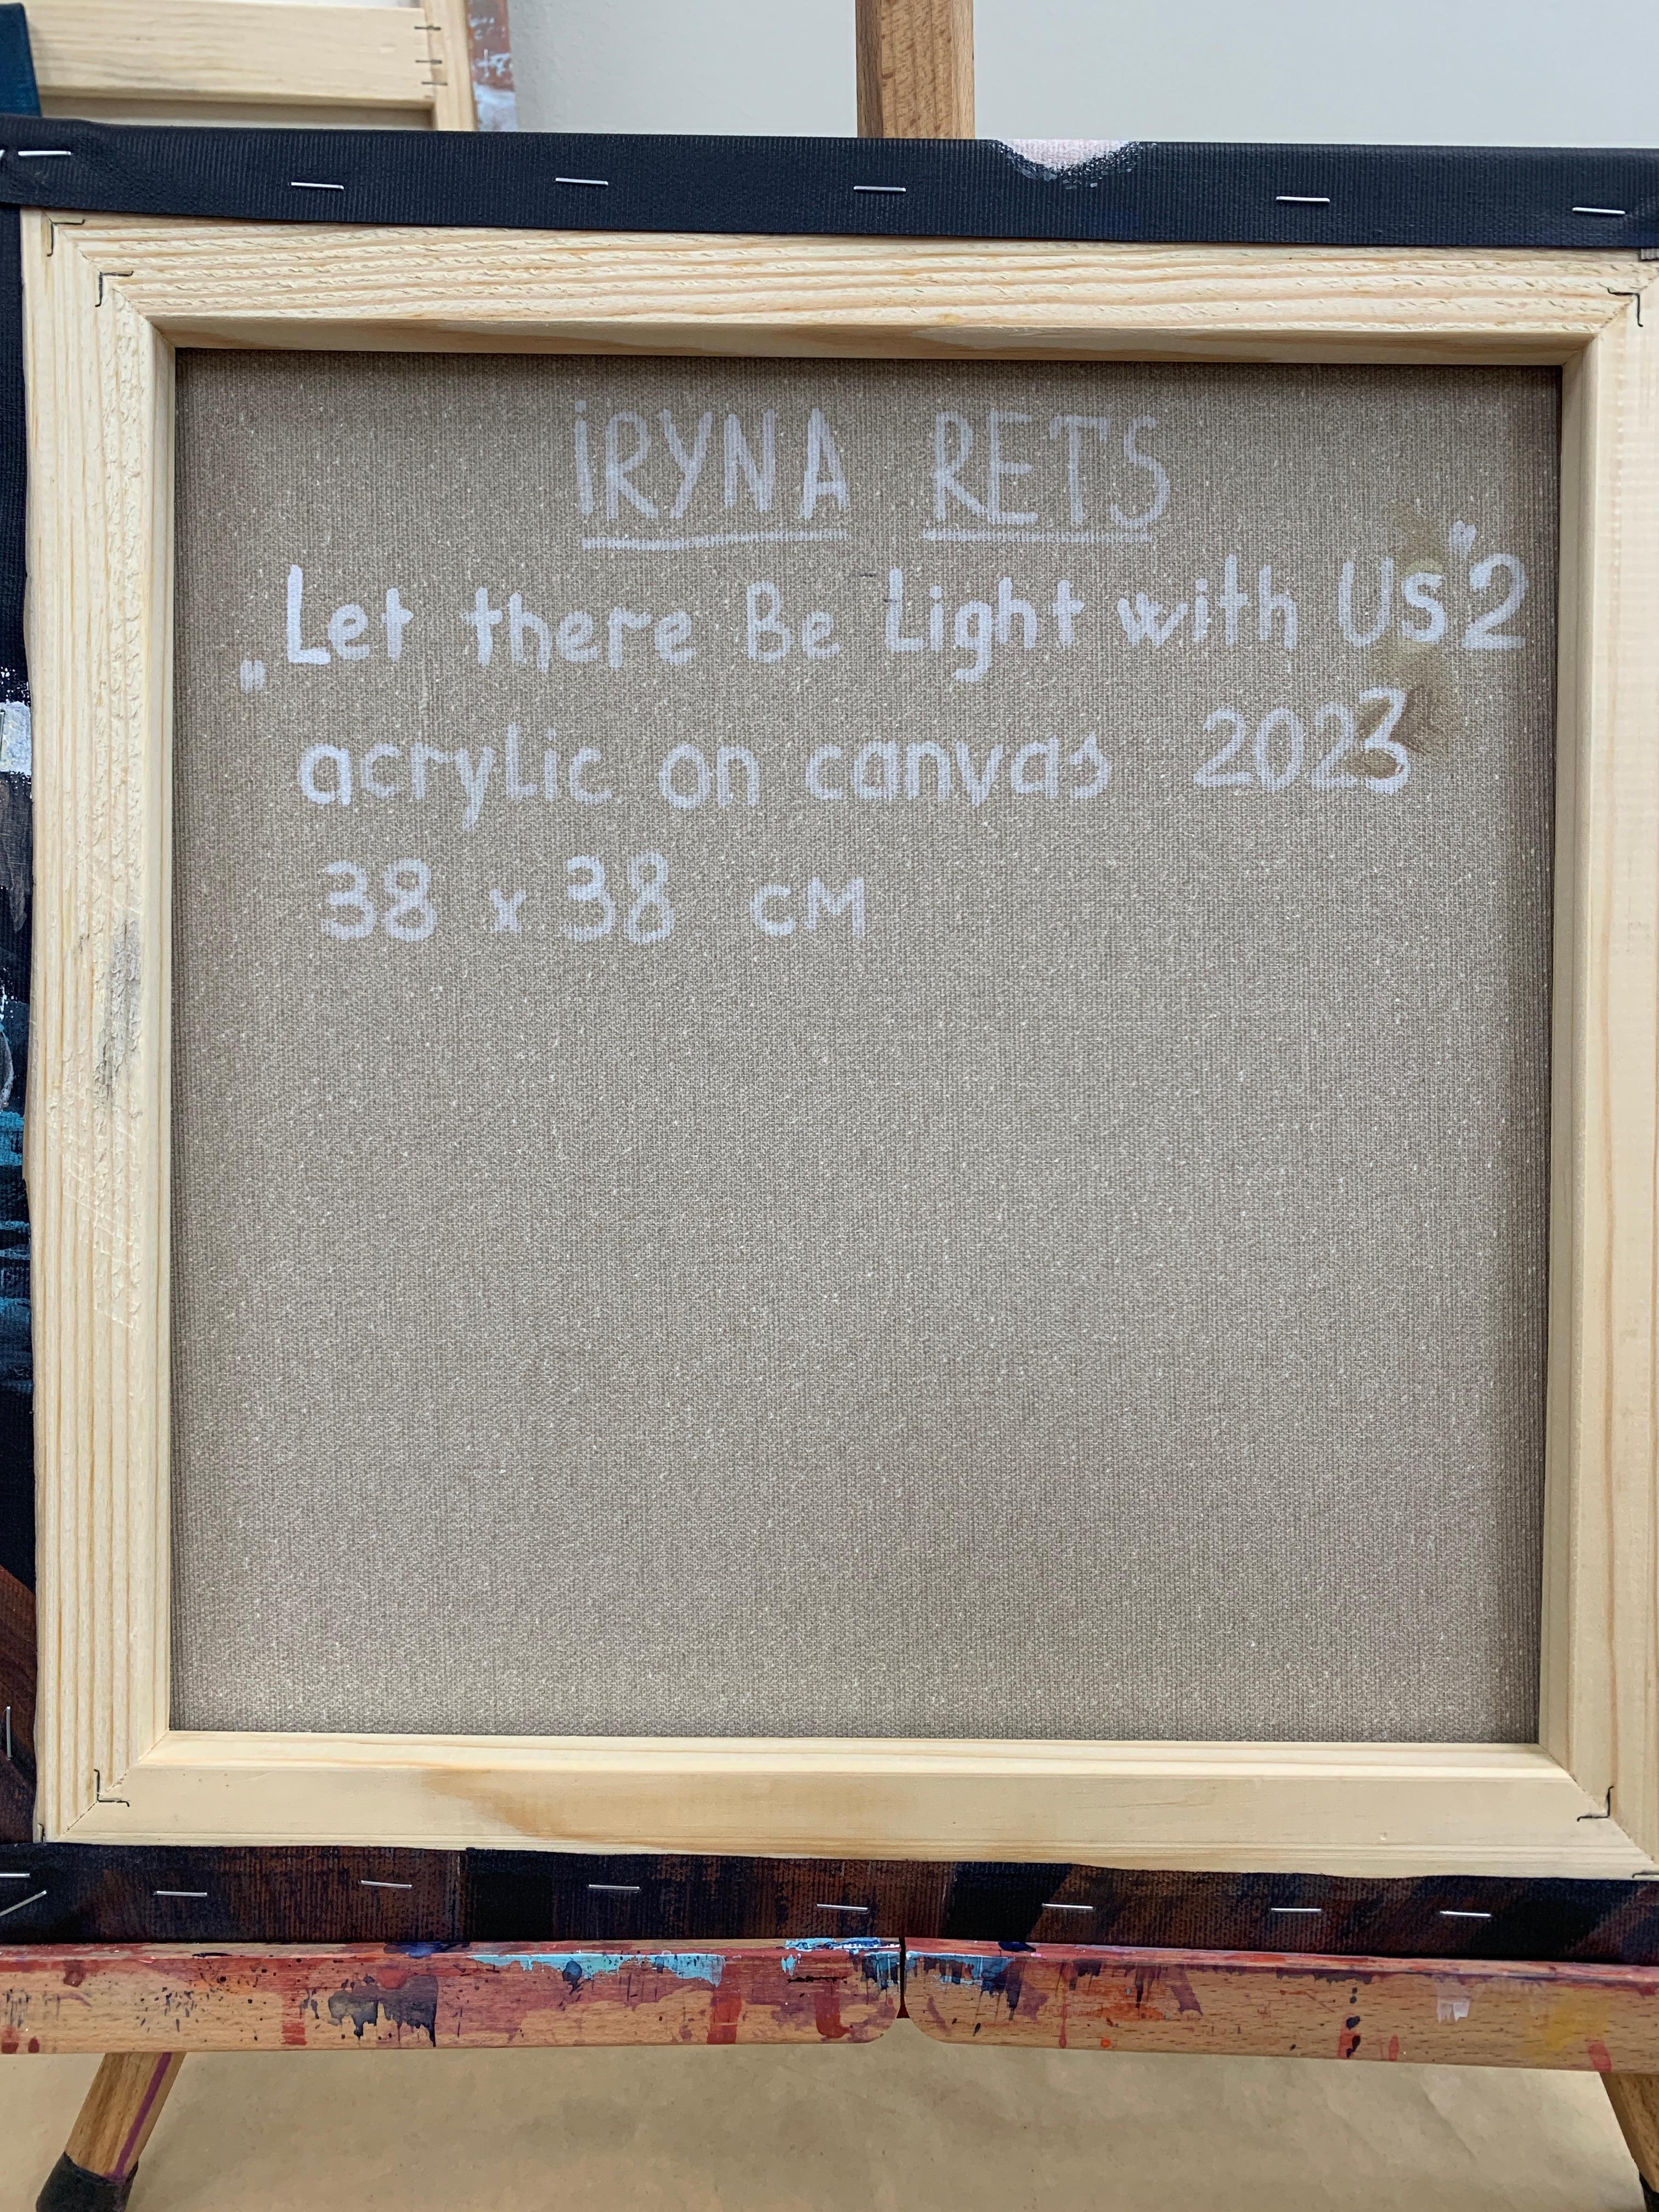 iRYNA RETS
„Let there Be Light with Us"2
acrylic on canvas 2023
38 x 38 cм